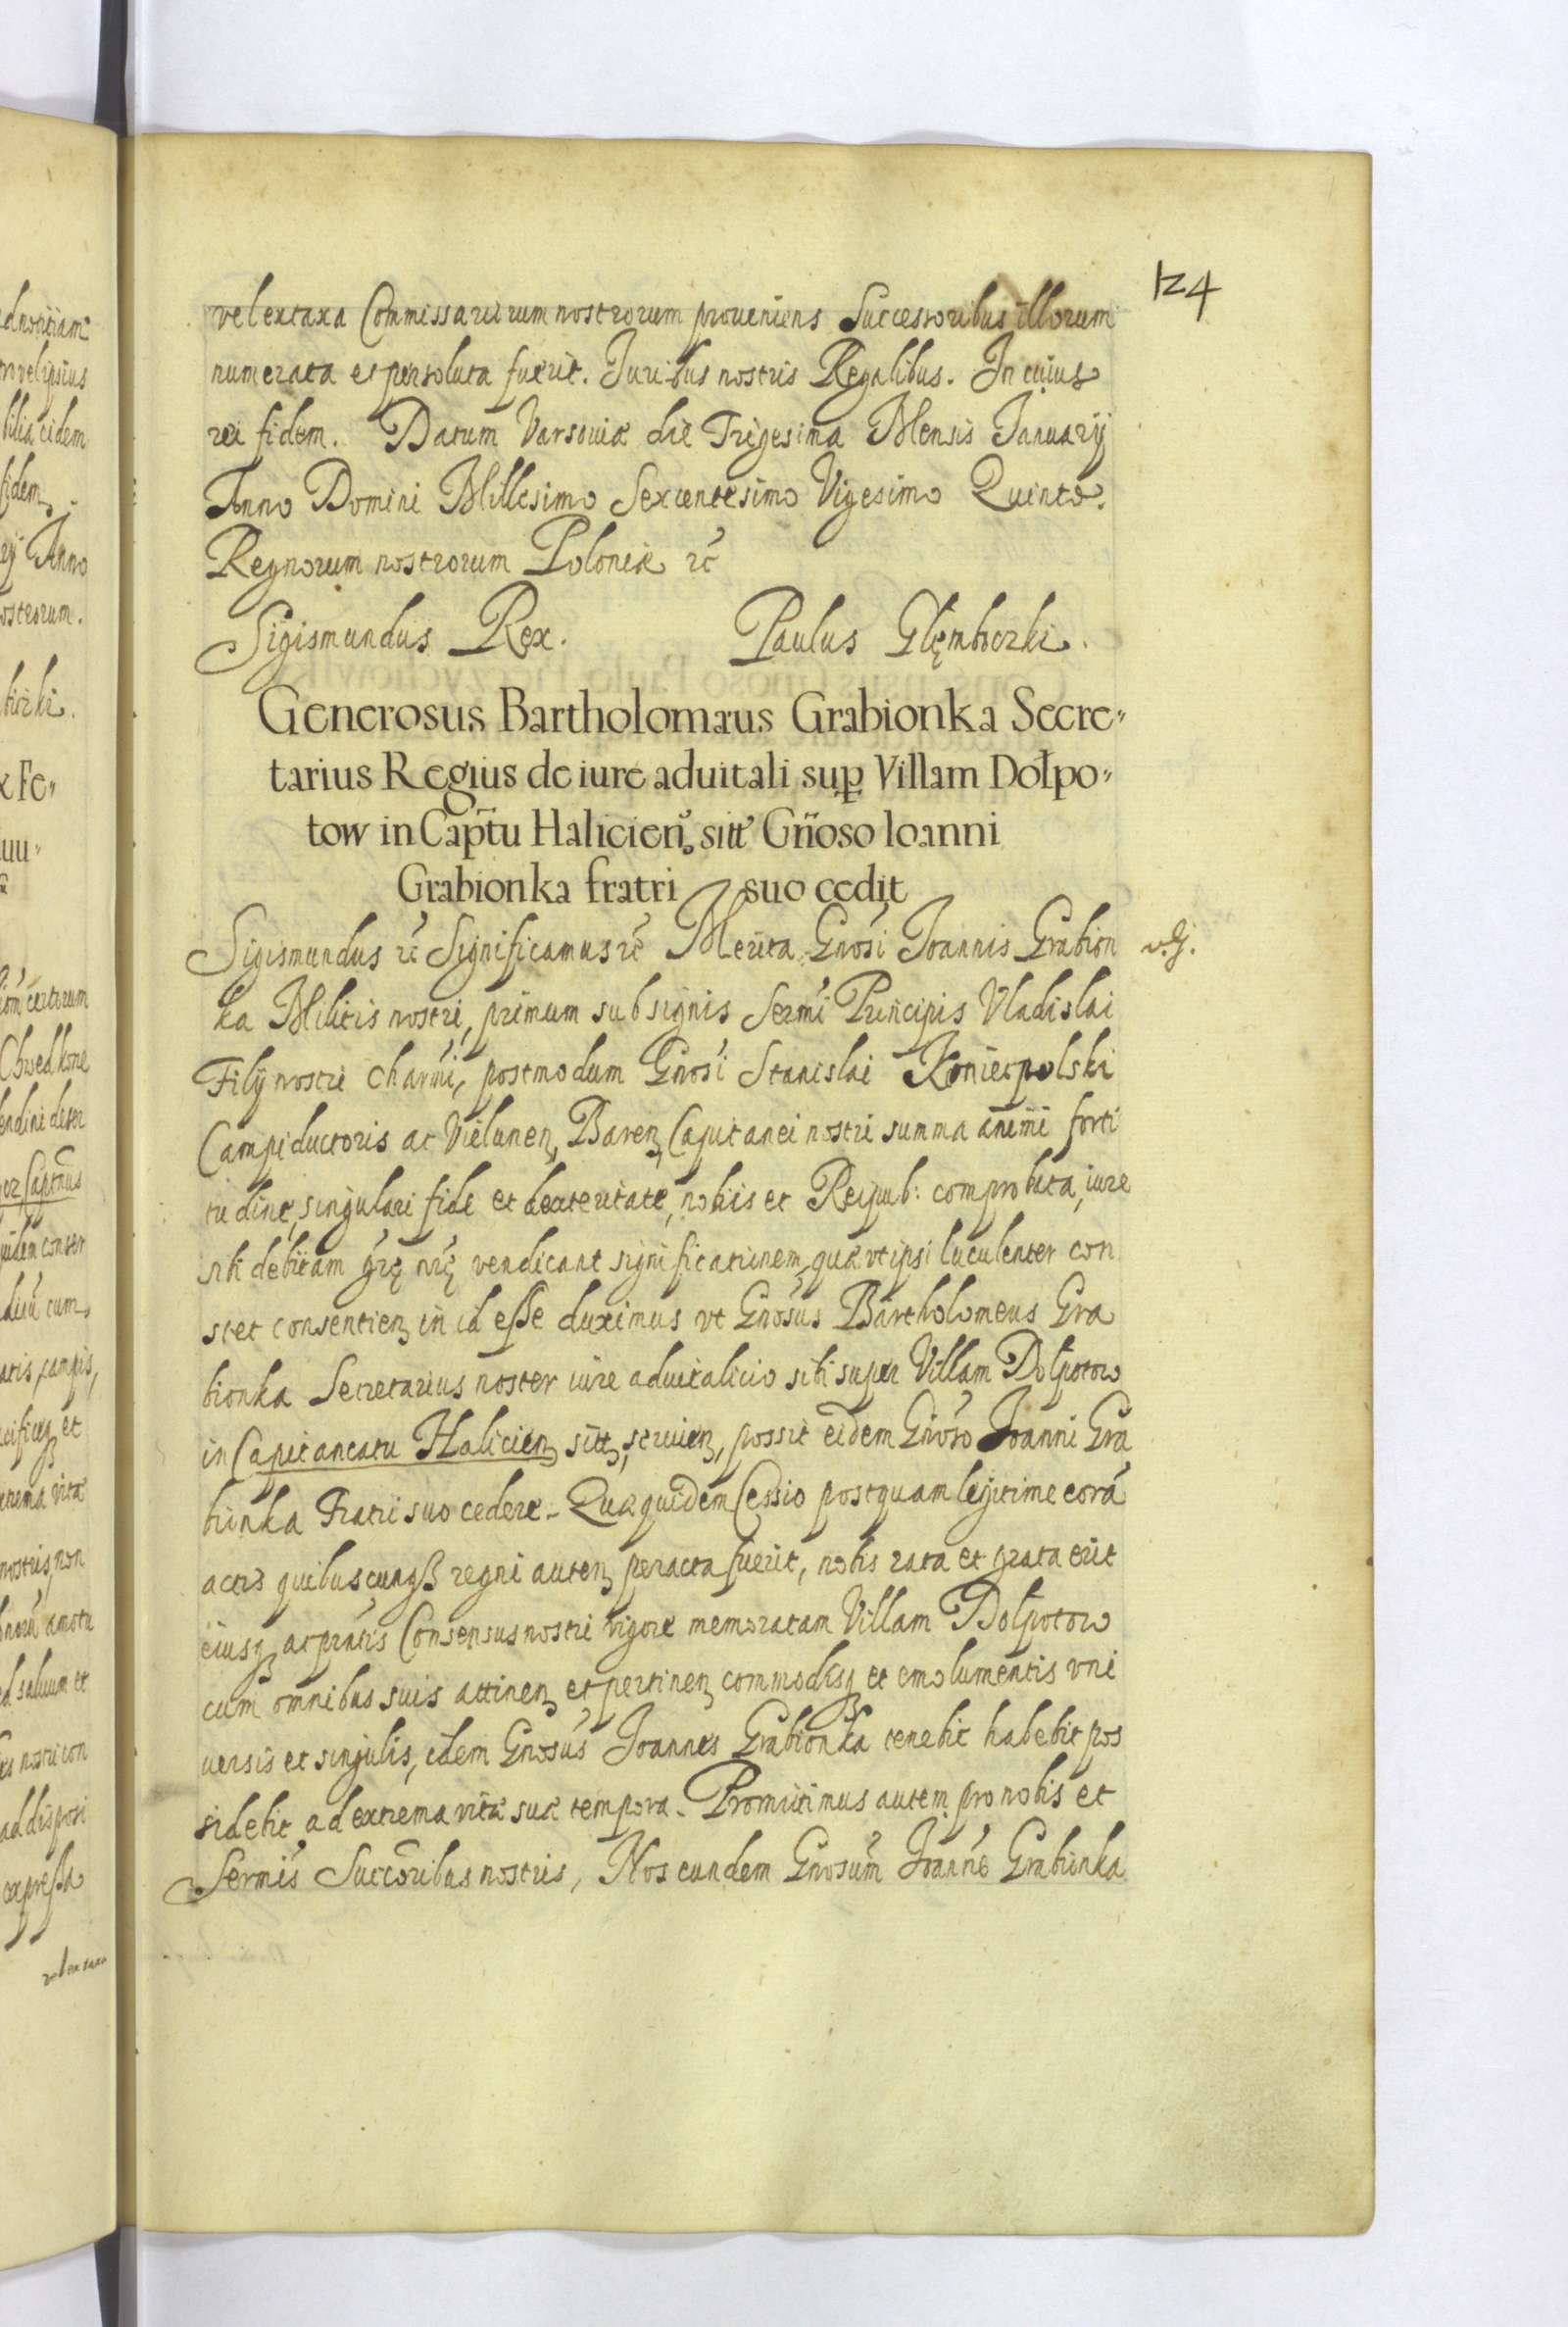 124
vel ex taxa Commissariorum nostrorum proueniens Successoribus illorum
numerata et persoluta fuerit. Iuribus nostris Regalibus. In cuius
rei fidem. Datum Varsouiæ die Trigesima Mensis Ianuarij
Anno Domini Millesimo Sexcentesimo Vigesimo Quinto.
Regnorum nostrorum Poloniæ rc̃
Sigismundus Rex. Paulus Głęmboczki.
Generosus Bartholomæus Grabionka Secre„
tarius Regius de iure aduitali sup Villam Dołpo„
tow in Cap̃tu Halicien̄ sitt̃ Gn̄oso Ioanni
Grabionka fratri suo cedit
Sigismundus rc̃ Significamus rc̃ Merita Gnosi Ioannis Grabion
ka Militis nostri, primum sub signis Sermi Principis Vladislai
Filij nostri charmi, postmodum Gnosi Stanislai Koniecpolski
Campiductoris ac Vielunen, Baren, Capitanei nostri summa animi forti
tudine, singulari fide et dexteritate, nobis et Reipub: comprobata, iure
sibi debitam grę nrę vendicant significationem, quæ vt ipsi luculenter con
stet consentien in id esse duximus vt Gnosus Bartholomeus Gra
bionka Secretarius noster iure aduitalicio sibi super Villam Dołpotow
in Capitaneatu Halicien sitt, seruien, possit eidem Gnoso Ioanni Gra
bionka Fratri suo cedere. Quæ quidem Cessio postquam legitime corã
actis quibuscunq regni auten peracta fuerit, nobis rata et grata erit
eiusq ac prñtis Consensus nostri vigore memoratam Villam Dołpotow
cum omnibus suis attinen et pertinen commodisq et emolumentis vni
uersis et singulis, idem Gnosus Ioannes Grabionka tenebit habebit pos
sidebit ad extrema vitæ suæ tempora. Promittimus autem pro nobis et
Sermis Succoribus nostris, Nos eundem Gnosum Ioannẽ Grabionka